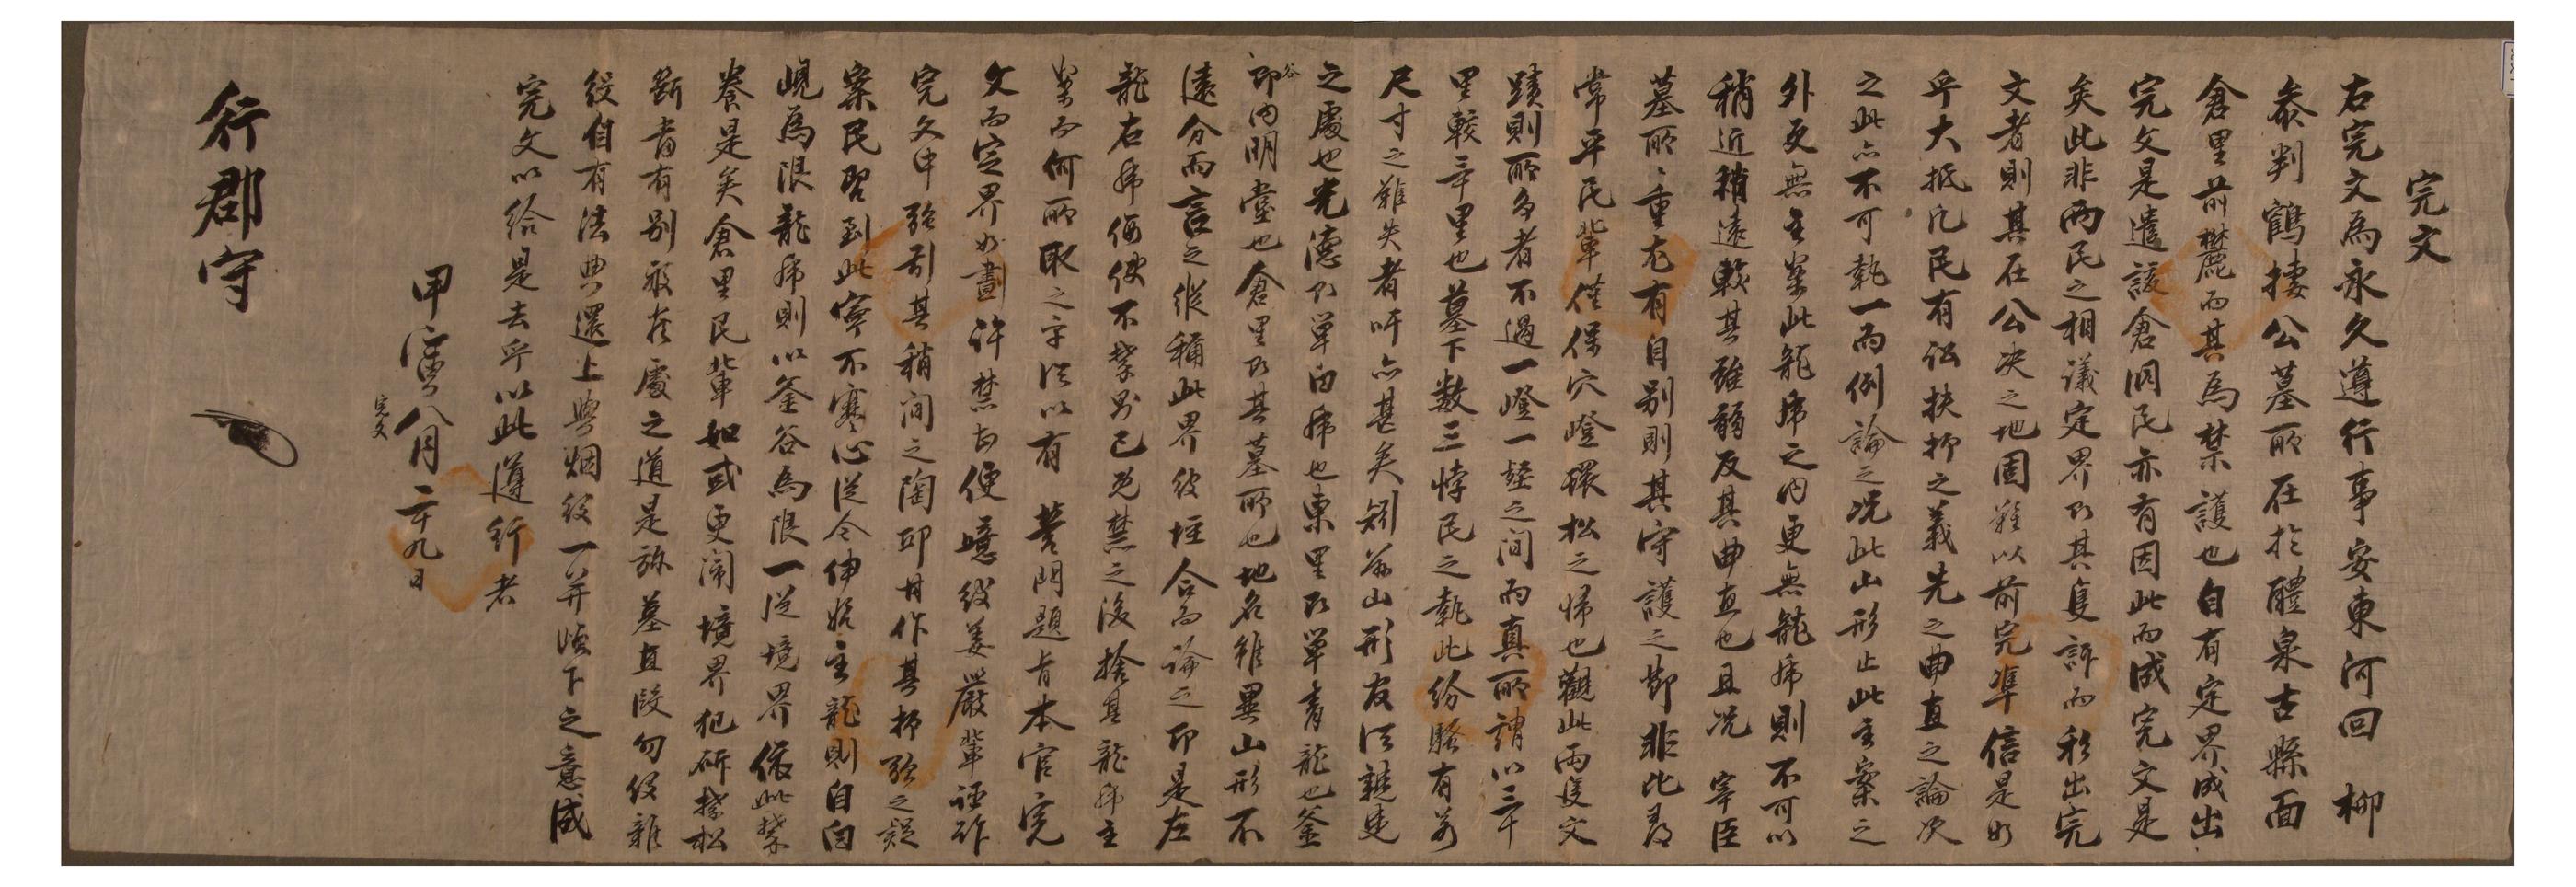 完文
右完文爲永久遵行事安東河回 柳
叅判鶴捿公墓所在於醴泉古縣面
倉里前麓而其爲禁護也自有定界成出
完文是遣該倉洞民亦有因此而成完文是
矣此非兩民之相議定界乃其隻訴而私出完
文者則其在公决之地固難以前完準信是如
乎大抵凡民有訟扶抑之義先之曲直之論次
之此亦不可執一而例論之况此山形止此主案之
外更無主案此龍席之內更無龍席則不可以
稍近稍遠較其强弱反其曲直也且况 宰臣
墓所所重尤有自别則其守護之節非比尋
常平民輩僅保穴嶝環松之悌也觀此兩隻文
蹟則所争者不過一嶝一壑之間而真所謂以三千
里較三千里也墓下数三悖民之執此紛騷有若
尺寸之難失者吁亦甚矣矧茲山形友以龍
之處也光德乃單白席也東里乃單青龍也釜谷
卽內明堂也倉里乃其墓所也地名雖異山形不
遠分而言之縱稱此界彼垤合而論之卽是左
龍右席便不禁界已為禁之後捨其龍席主
案而何所取之乎以有 營門題旨本官完
文而定界如畫許禁有便噫彼姜嚴輩誣訴
完文中强引其稍间之陶邱冊作其抑强之疑
案民習到此寧不寒心從今伊始主龍則自白
峴爲限龍席則以釜谷爲限一從境界依此禁
養是矣倉里民輩如或更闹境界犯斫禁松
斷當有别報嚴處之道是旀墓直段勿侵雜
役自有法典還上與烟役一并頉下之意成
完文以給是去乎以此遵行者
甲寅八月二十九日
完文
行郡守